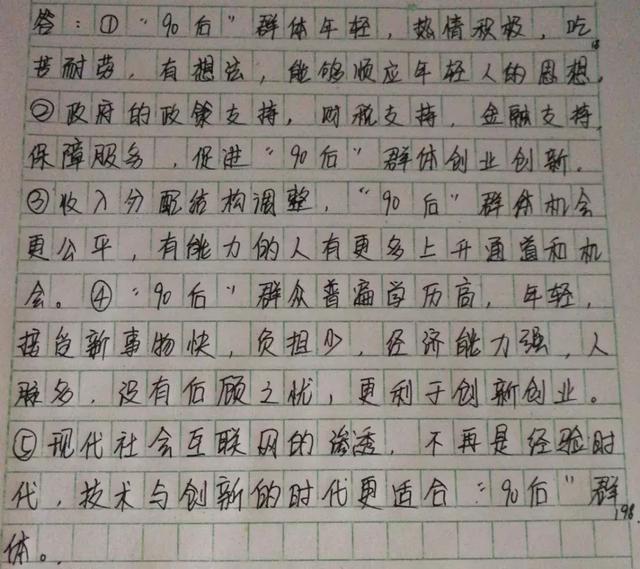 答：①“90后”群体年轻，热情积极，吃
苦耐劳，有想法，能够顺应年轻人的思想。
②政府的政策支持，财税支持，金融支持，
保障服务，促进“90后”群体创业创新。
③收入分配结构调整，“90后”群体机会
更公平，有能力的人有更多上升通道和机
会。④“90后”群众普遍学历高，年轻，
接受新事物快，负担少，经济能力强，人
脉多，没有后顾之忧，更利于创新创业。
⑤现代社会互联网的渗透，不再是经验时
代，技术与创新的时代更适合“90后”群
198
体。